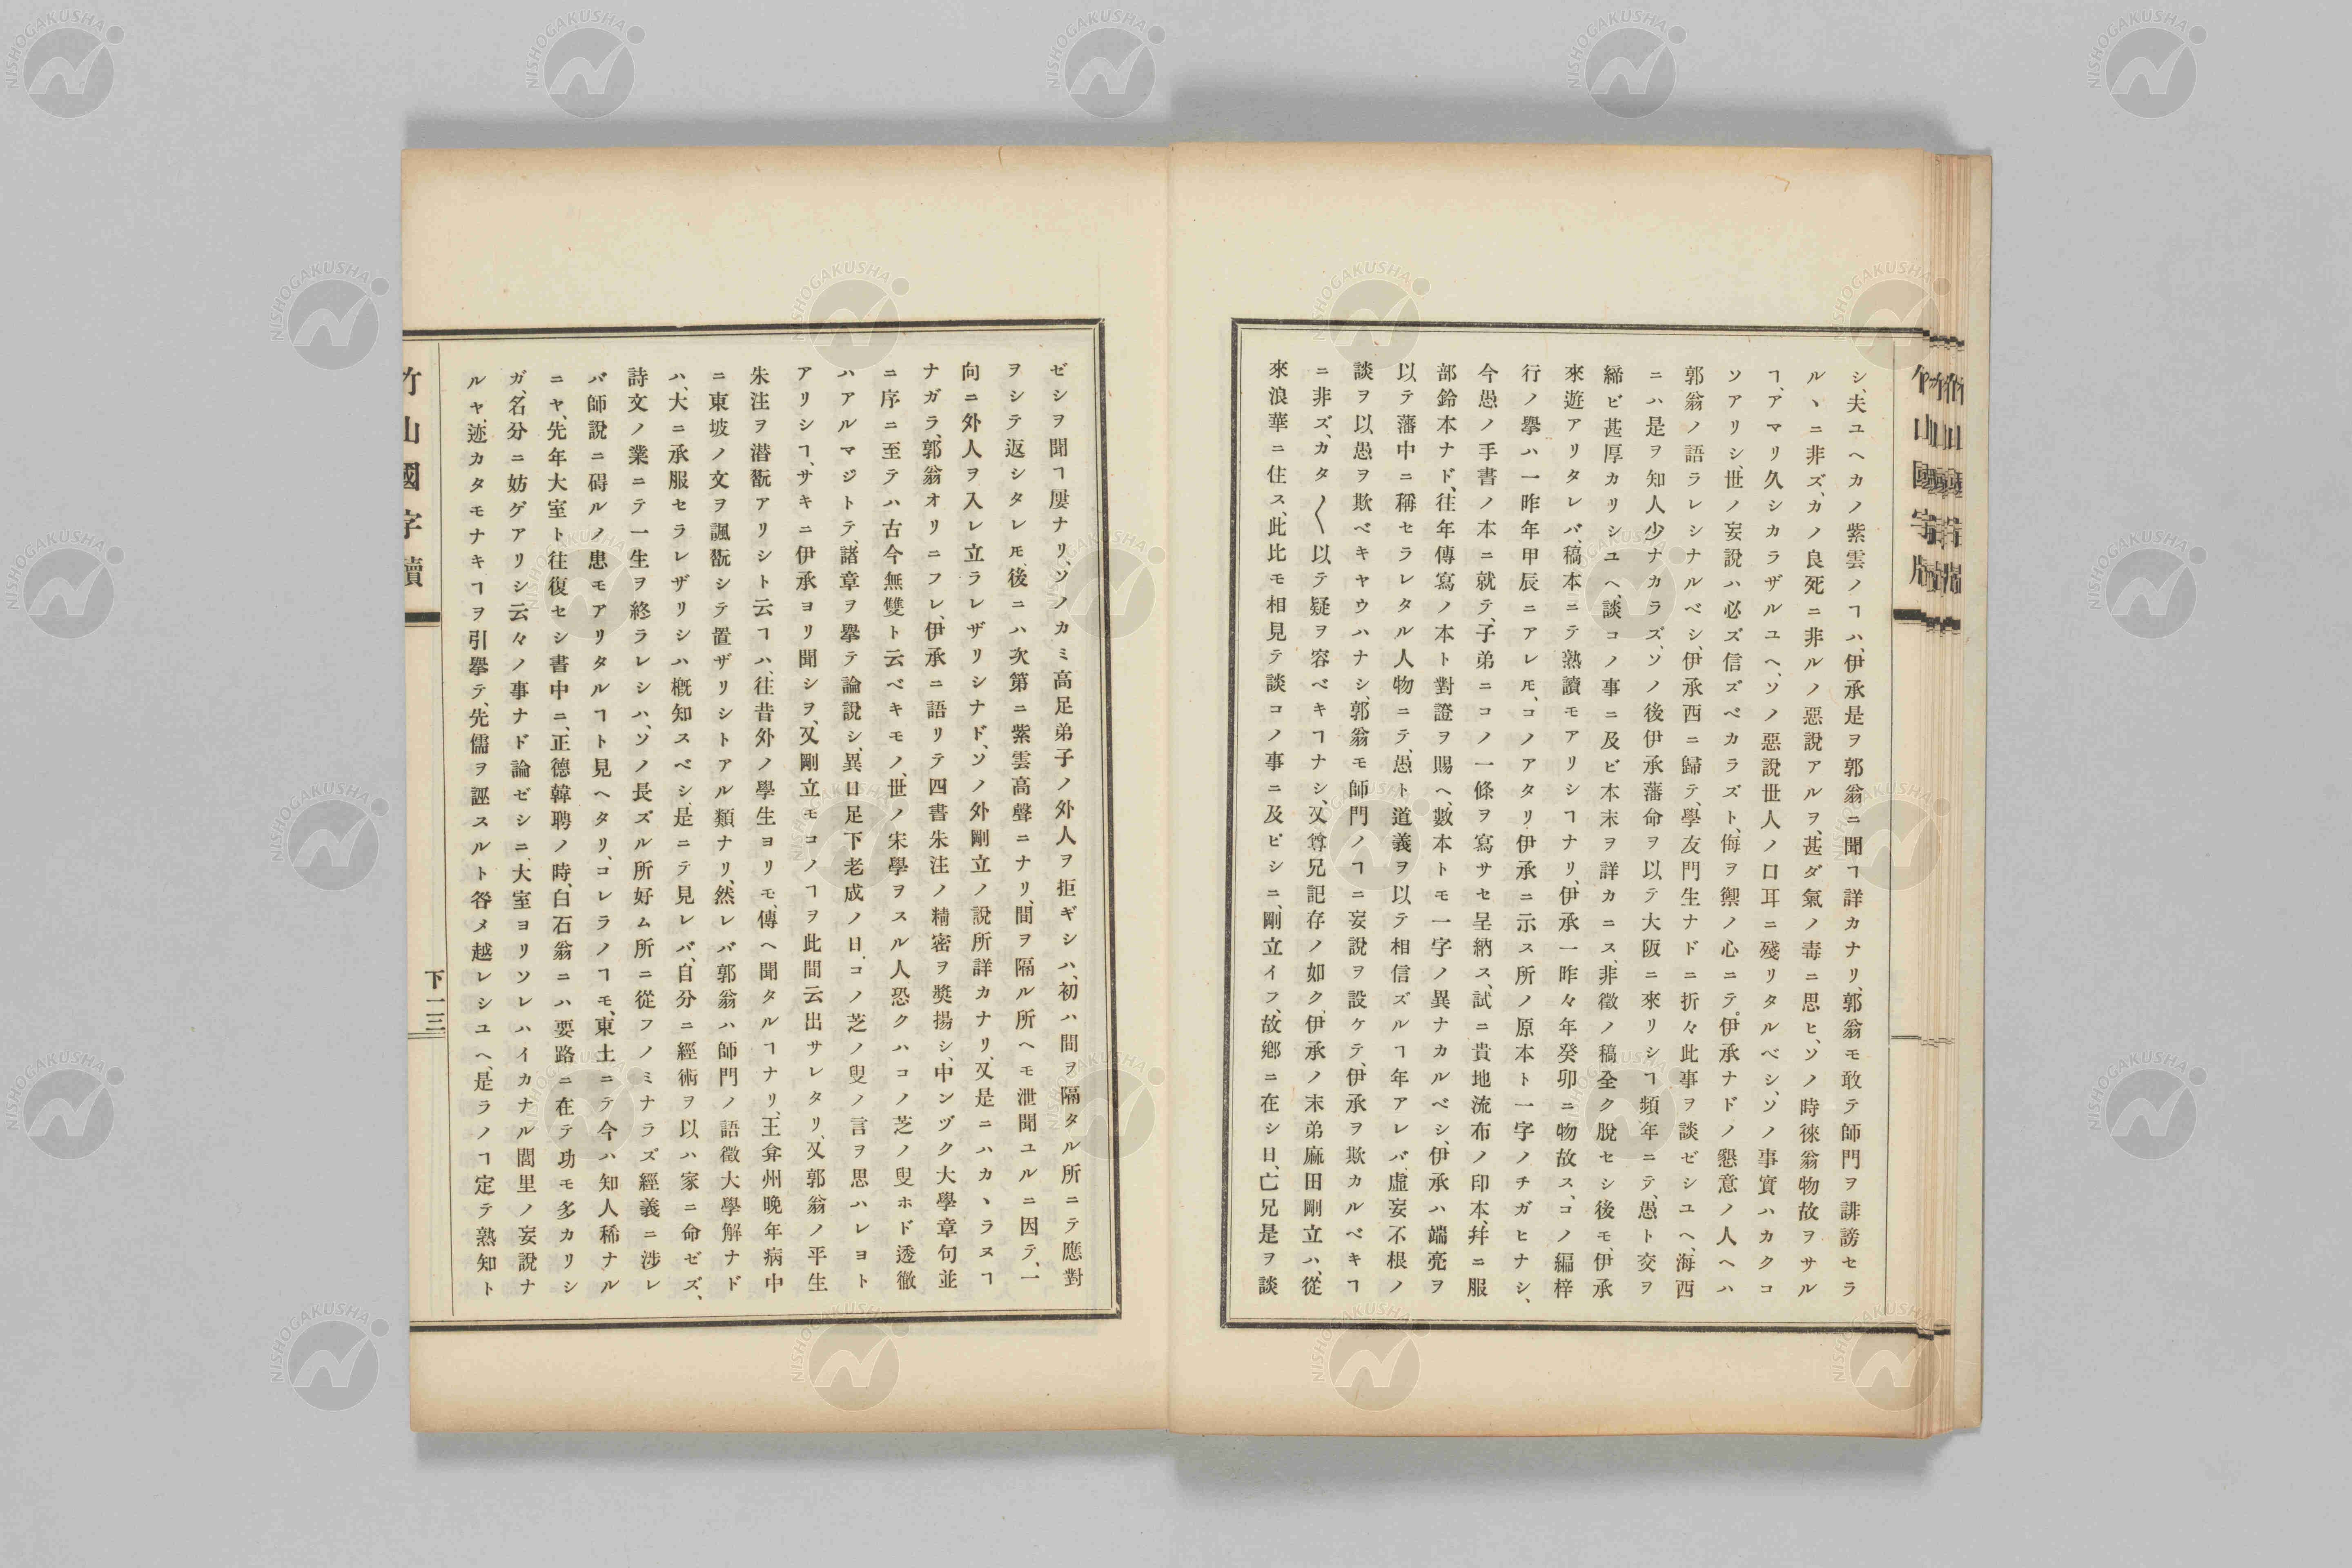 シ、夫ユヘカノ紫雲ノヿハ、伊承是ヲ郭翁ニ聞ヿ詳カナリ、郭翁モ敢テ師門ヲ誹謗セラ
ルヽニ非ズ、カノ良死ニ非ルノ惡說アルヲ、甚ダ氣ノ毒ニ思ヒ、ソノ時徠翁物故ヲサル
ヿ、アマリ久シカラザルユヘ、ソノ惡說世人ノ口耳ニ殘リタルベシ、ソノ事實ハカクコ
ソアリシ、世ノ妄說ハ必ズ信ズベカラズト、侮ヲ禦ノ心ニテ。伊承ナドノ懇意ノ人ヘハ
郭翁ノ語ラレシナルベシ、伊承西ニ歸テ、學友門生ナドニ折々此事ヲ談ゼシユヘ、海西
ニハ是ヲ知人少ナカラズ、ソノ後伊承藩命ヲ以テ大阪ニ來リシヿ頻年ニテ、愚ト交ヲ
締ビ甚厚カリシユヘ、談コノ事ニ及ビ本末ヲ詳カニス、非徵ノ稿全ク脫セシ後モ、伊承
來遊アリタレバ、稿本ニテ熟讀モアリシヿナリ、伊承一昨々年癸卯ニ物故ス、コノ編梓
行ノ擧ハ一昨年甲辰ニアレ𪜈、コノアタリ伊承ニ示ス所ノ原本ト一字ノチガヒナシ、
今愚ノ手書ノ本ニ就テ、子弟ニコノ一條ヲ寫サセ呈納ス、試ニ貴地流布ノ印本、幷ニ服
部鈴本ナド、往年傳寫ノ本ト對證ヲ賜ヘ、數本トモ一字ノ異ナカルベシ、伊承ハ端亮ヲ
以テ藩中ニ稱セラレタル人物ニテ、愚ト道義ヲ以テ相信ズルヿ年アレバ虛妄不根ノ
談ヲ以愚ヲ欺ベキヤウハナシ、郭翁モ師門ノヿニ妄說ヲ設ケテ、伊承ヲ欺カルベキヿ
ニ非ズ、カタ〱以テ疑ヲ容ベキヿナシ、又尊兄記存ノ如ク、伊承ノ末弟麻田剛立ハ、從
來浪華ニ住ス、此比モ相見テ談コノ事ニ及ビシニ、剛立イフ、故鄕ニ在シ日、亡兄是ヲ談
ゼシヲ聞ヿ屢ナリ、ソノカミ高足弟子ノ外人ヲ拒ギシハ、初ハ間ヲ隔タル所ニテ應對
ヲシテ返シタレ𪜈、後ニハ次第ニ紫雲高聲ニナリ、間ヲ隔ル所ヘモ泄聞ユルニ因テ、一
向ニ外人ヲ入レ立ラレザリシナド、ソノ外剛立ノ說所詳カナリ、又是ニハカヽラヌヿ
ナガラ、郭翁オリニフレ、伊承ニ語リテ四書朱注ノ精密ヲ獎揚シ、中ンヅク大學章句並
ニ序ニ至テハ古今無雙ト云ベキモノ、世ノ宋學ヲスル人恐クハコノ芝ノ叟ホド透徹
ハアルマジトテ、諸章ヲ擧テ論說シ、異日足下老成ノ日、コノ芝ノ叟ノ言ヲ思ハレヨト
アリシヿ、サキニ伊承ヨリ聞シヲ、又剛立モコノヿヲ此間云出サレタリ、又郭翁ノ平生
朱注ヲ潜翫アリシト云ヿハ、往昔外ノ學生ヨリモ、傳ヘ聞タルヿナリ、王弇州晚年病中
ニ東坡ノ文ヲ諷翫シテ置ザリシトアル類ナリ、然レバ郭翁ハ師門ノ語徵大學解ナド
ハ、大ニ承服セラレザリシハ槪知スベシ、是ニテ見レバ、自分ニ經術ヲ以ハ家ニ命ゼズ、
詩文ノ業ニテ一生ヲ終ラレシハ、ソノ長ズル所好ム所ニ從フノミナラズ經義ニ涉レ
バ師說ニ碍ルノ患モアリタルヿト見ヘタリ、コレラノヿモ、東土ニテ今ハ知人稀ナル
ニヤ、先年大室ト往復セシ書中ニ、正德韓聘ノ時、白石翁ニハ要路ニ在テ功モ多カリシ
ガ、名分ニ妨ゲアリシ云々ノ事ナド論ゼシニ、大室ヨリソレハイカナル閭里ノ妄說ナ
ルヤ、迹カタモナキヿヲ引擧テ、先儒ヲ誣スルト咎メ越レシユヘ、是ラノヿ定テ熟知ト
竹山國字牘
下一三